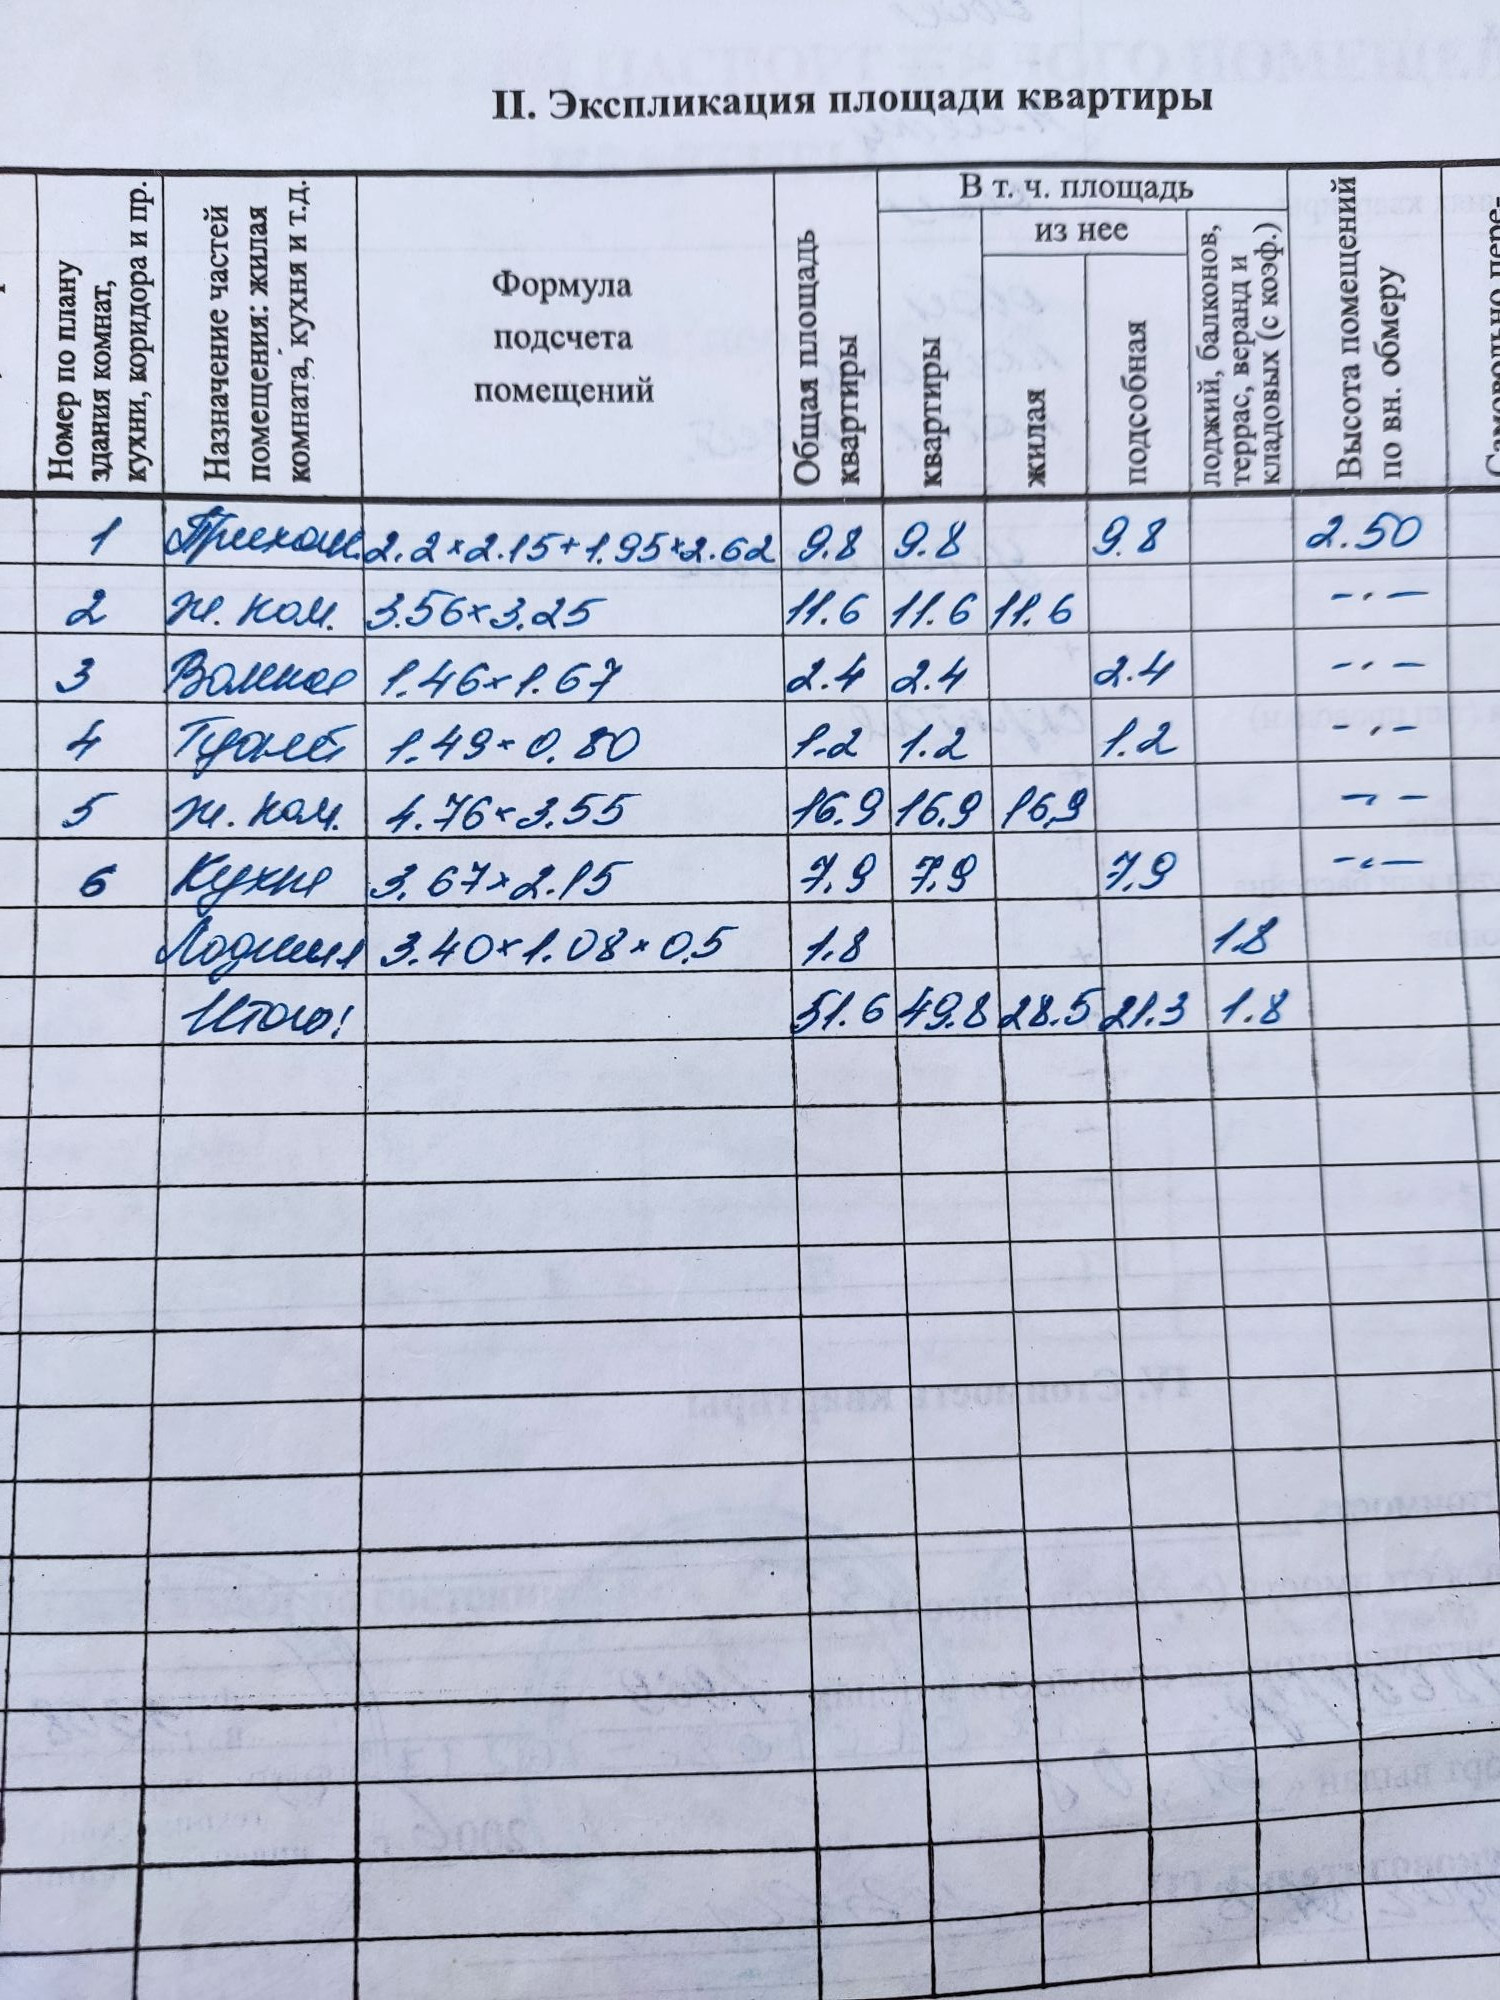 II. Экспликация площади квартиры
Номер по плану здания комнат, кухни, коридора и пр.
Назначение частей помещения: жилая комната, кухня и т.д.
Формула подсчета помещений
Общая площадь квартиры
В т. ч. площадь
квартиры
из нее
жилая
подсобная
лоджий, балконов, террас, веранд и кладовых (с коэф.)
Высота помещений по вн. обмеру
Самовольно пере-
1 Прихож. 2.2×2.15+1.95×2.62 9.8 9.8 9.8 2.50
2 ж. ком. 3.56×3.25 11.6 11.6 11.6 –·–
3 Ванная 1.46×1.67 2.4 2.4 2.4 –·–
4 Туалет 1.49×0.80 1.2 1.2 1.2 –·–
5 ж. ком. 4.76×3.55 16.9 16.9 16,9 –·–
6 Кухня 3.67×2.15 7.9 7.9 7,9 –·–
Лоджия 3.40×1.08×0.5 1.8 1.8
Итого: 51.6 49.8 28.5 21.3 1.8
IV. Стоимость квартиры